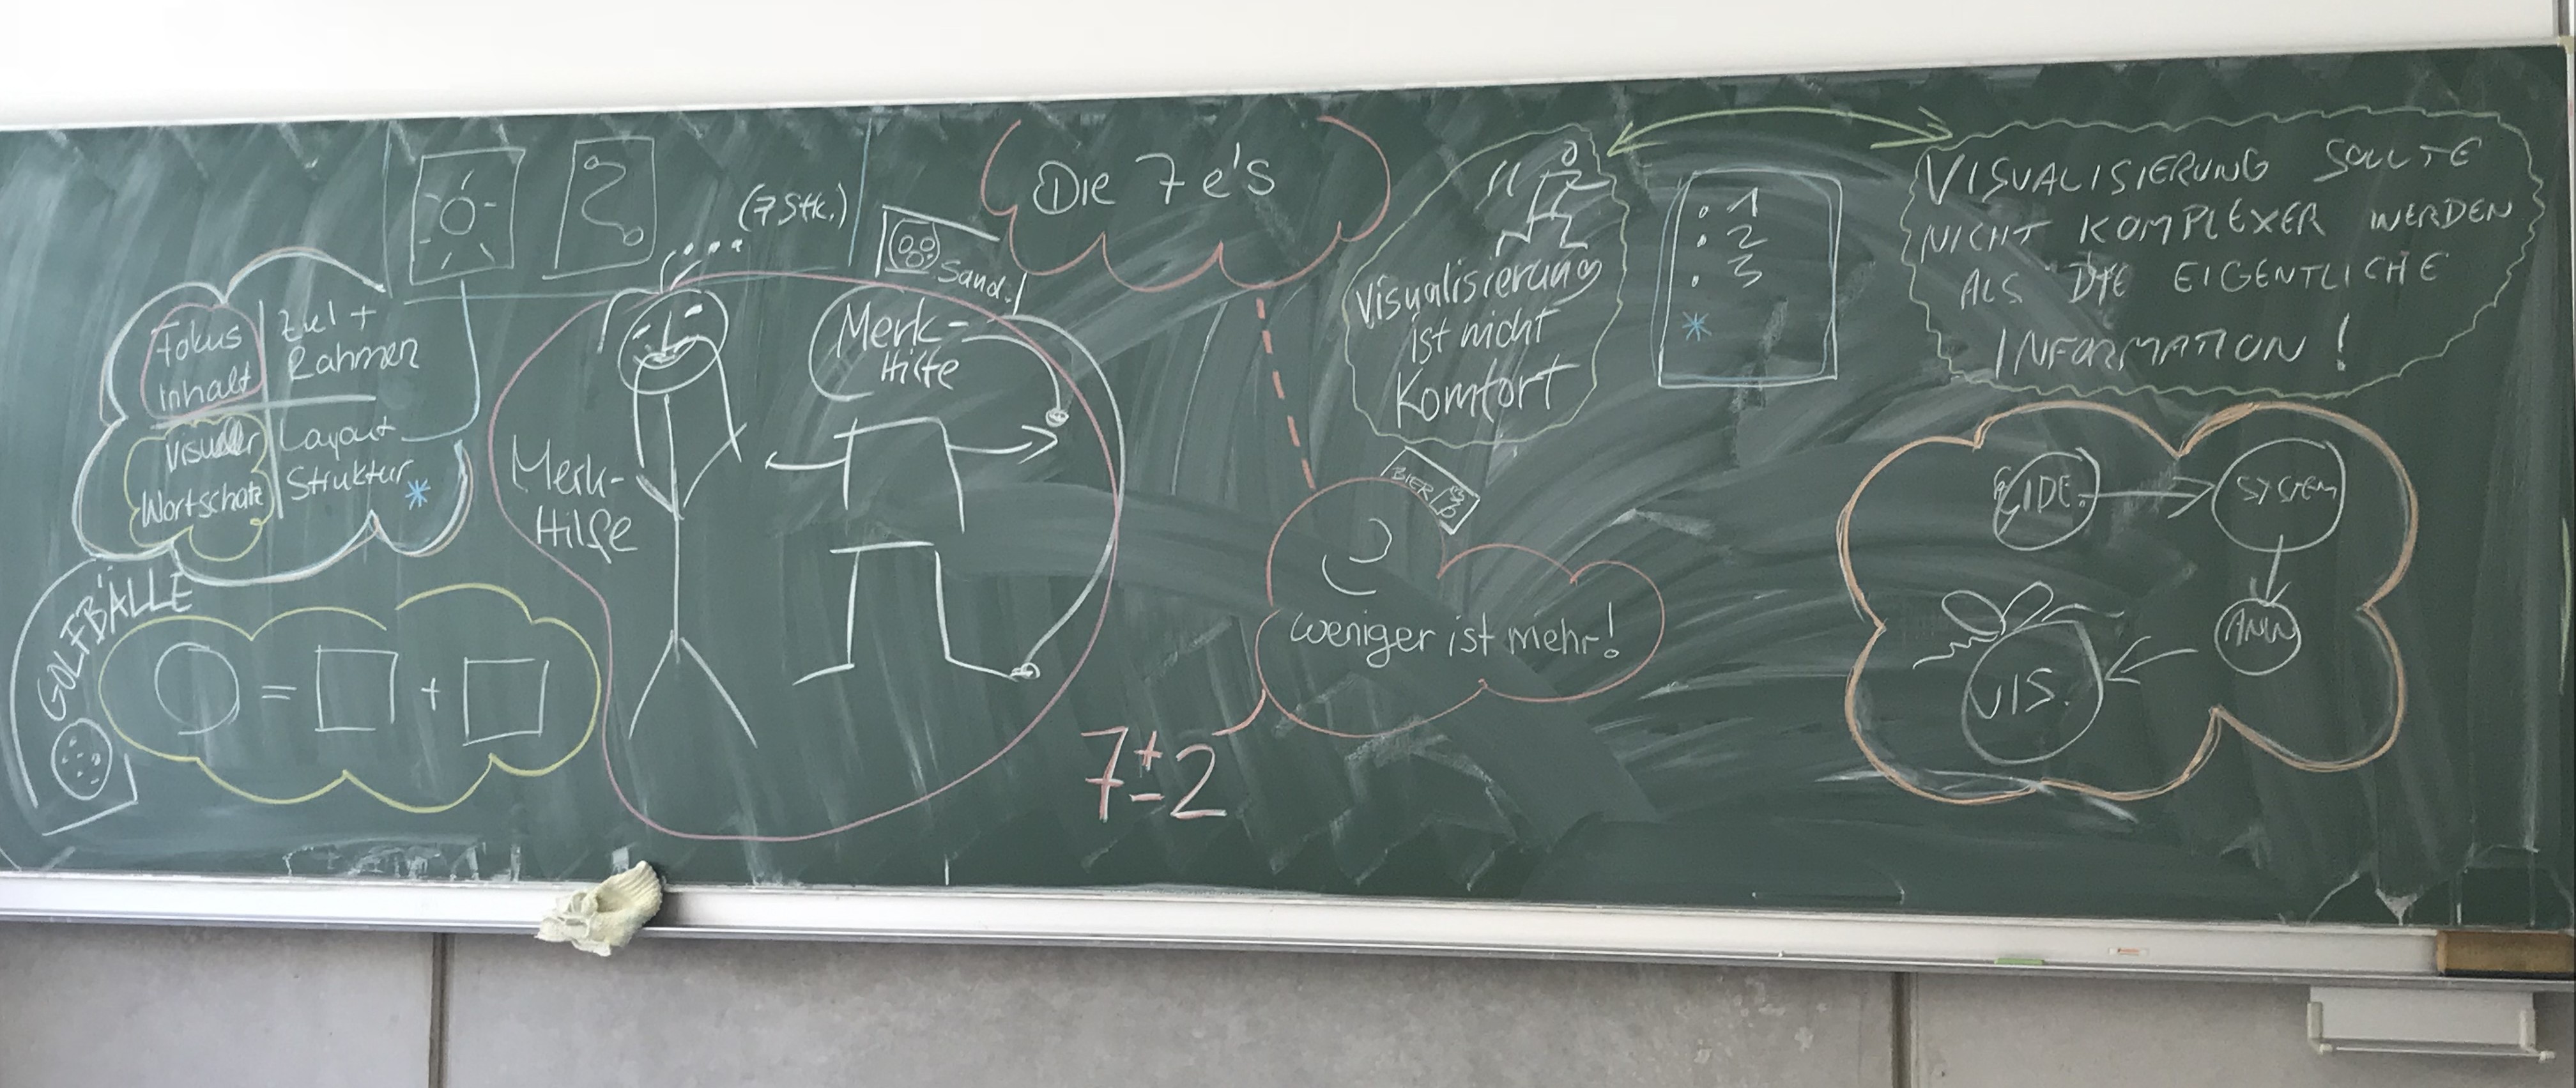 Fokus
Inhalt
Ziel +
Rahmen
Visueller
Wortschatz
Layout
Struktur
GOLFBÄLLE
=
+
(7 Stk.)
Sand!
Merk-
Hilfe
Merk-
Hilfe
Die 7 e's
Visualisierung
ist nicht
Komfort
1
2
3
VISUALISIERUNG SOLLTE
NICHT KOMPLEXER WERDEN
ALS DIE EIGENTLICHE
INFORMATION!
BIER
weniger ist mehr!
7±2
IDE.
SYSTEM
ANW
VIS.